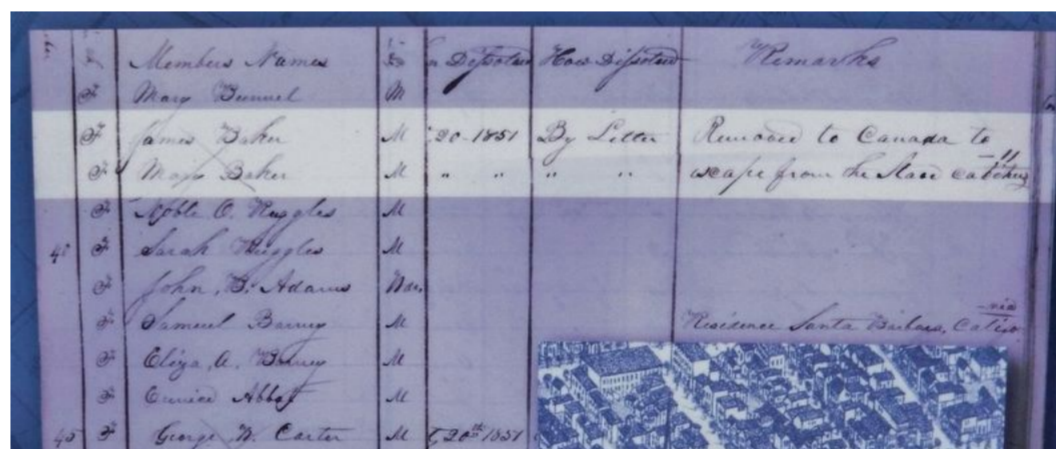 Members Names How Disposed Remarks
F Mary Bunnel M
F James Baker M 20 1851 By Letter Removed to Canada to
F Mary Baker M " " " " escape from the slave catchers
F Noble O. Ruggles M
40 F Sarah Ruggles M
F John Adams
F Samuel Barney M Residence Santa Barbara, Califor
F Eliza A. Barney M
F Eunice Abbot M
45 F George W. Carter M 20th 1851